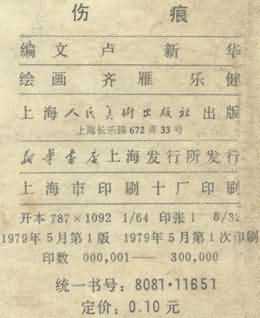 伤痕
编文 卢新华
绘画 齐雁 乐健
上海人民美术出版社出版
上海长乐路672弄33号
新华书店上海发行所发行
上海市印刷十厂印刷
开本 787×1092 1/64 印张 1 8/32
1979年5月第1版 1979年5月第1次印刷
印数 000,001—300,000
统一书号:8081·11651
定价:0.10元